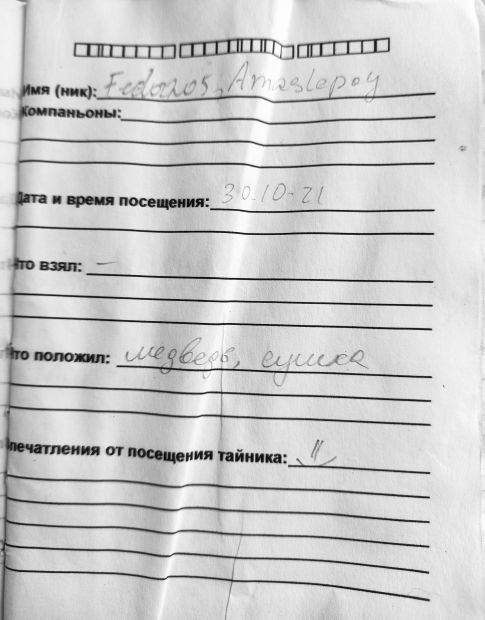 Имя (ник): Fedor205, Amaslepoy
Компаньоны:
Дата и время посещения: 30.10.21
Что взял: —
Что положил: медведь, сушка
Впечатления от посещения тайника: